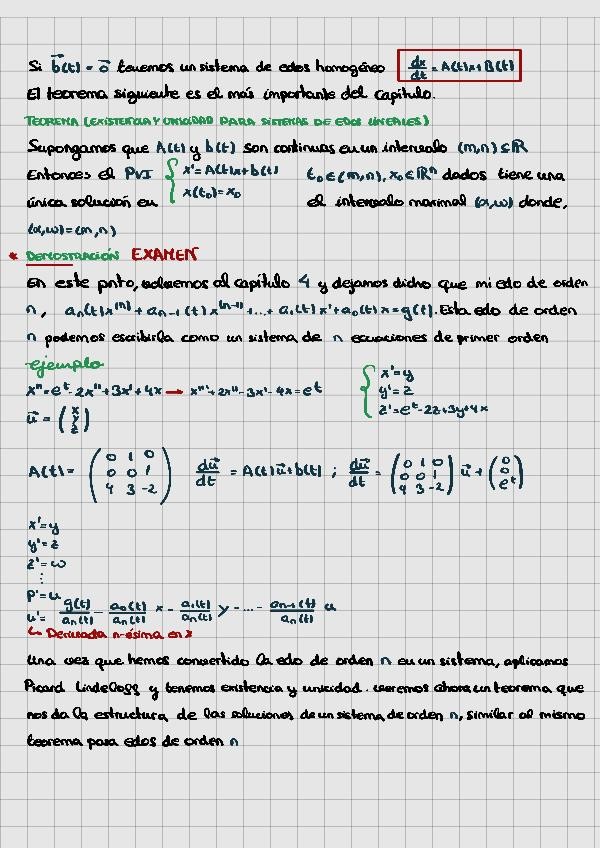 Si b⃗(t) = 0⃗ tenemos un sistema de edos homogéneo dx/dt = A(t)x + B(t)
El teorema siguiente es el más importante del capítulo.
TEOREMA (EXISTENCIA Y UNICIDAD PARA SISTEMAS DE EDOS LINEALES)
Supongamos que A(t) y b(t) son continuas en un intervalo (m,n) ⊆ ℝ
Entonces el PVI { x' = A(t)x + b(t) t₀ ∈ (m,n), x₀ ∈ ℝⁿ dados tiene una
x(t₀) = x₀
única solución en el intervalo maximal (α,ω) donde,
(α,ω) = (m,n)
* DEMOSTRACIÓN EXAMEN
En este pnto, volvemos al capítulo 4 y dejamos dicho que mi edo de orden
n, aₙ(t)x⁽ⁿ⁾ + aₙ₋₁(t)x⁽ⁿ⁻¹⁾ + ... + a₁(t)x' + a₀(t)x = g(t). Esta edo de orden
n podemos escribirla como un sistema de n ecuaciones de primer orden
ejemplo
x''' = eᵗ - 2x'' + 3x' + 4x → x''' + 2x'' - 3x' - 4x = eᵗ { x' = y
y' = z
z' = eᵗ - 2z + 3y + 4x
u⃗ = (x y z)
A(t) = (0 1 0; 0 0 1; 4 3 -2) du⃗/dt = A(t)u⃗ + b(t) ; du⃗/dt = (0 1 0; 0 0 1; 4 3 -2) u⃗ + (0; 0; eᵗ)
x' = y
y' = z
z' = ω
⋮
p' = u
u' = g(t)/aₙ(t) - a₀(t)/aₙ(t) x - a₁(t)/aₙ(t) y - ... - aₙ₋₁(t)/aₙ(t) u
↳ Derivada n-ésima en x
Una vez que hemos convertido la edo de orden n en un sistema, aplicamos
Picard Lindeloff y tenemos existencia y unicidad. Veremos ahora un teorema que
nos da la estructura de las soluciones de un sistema de orden n, similar al mismo
teorema para edos de orden n